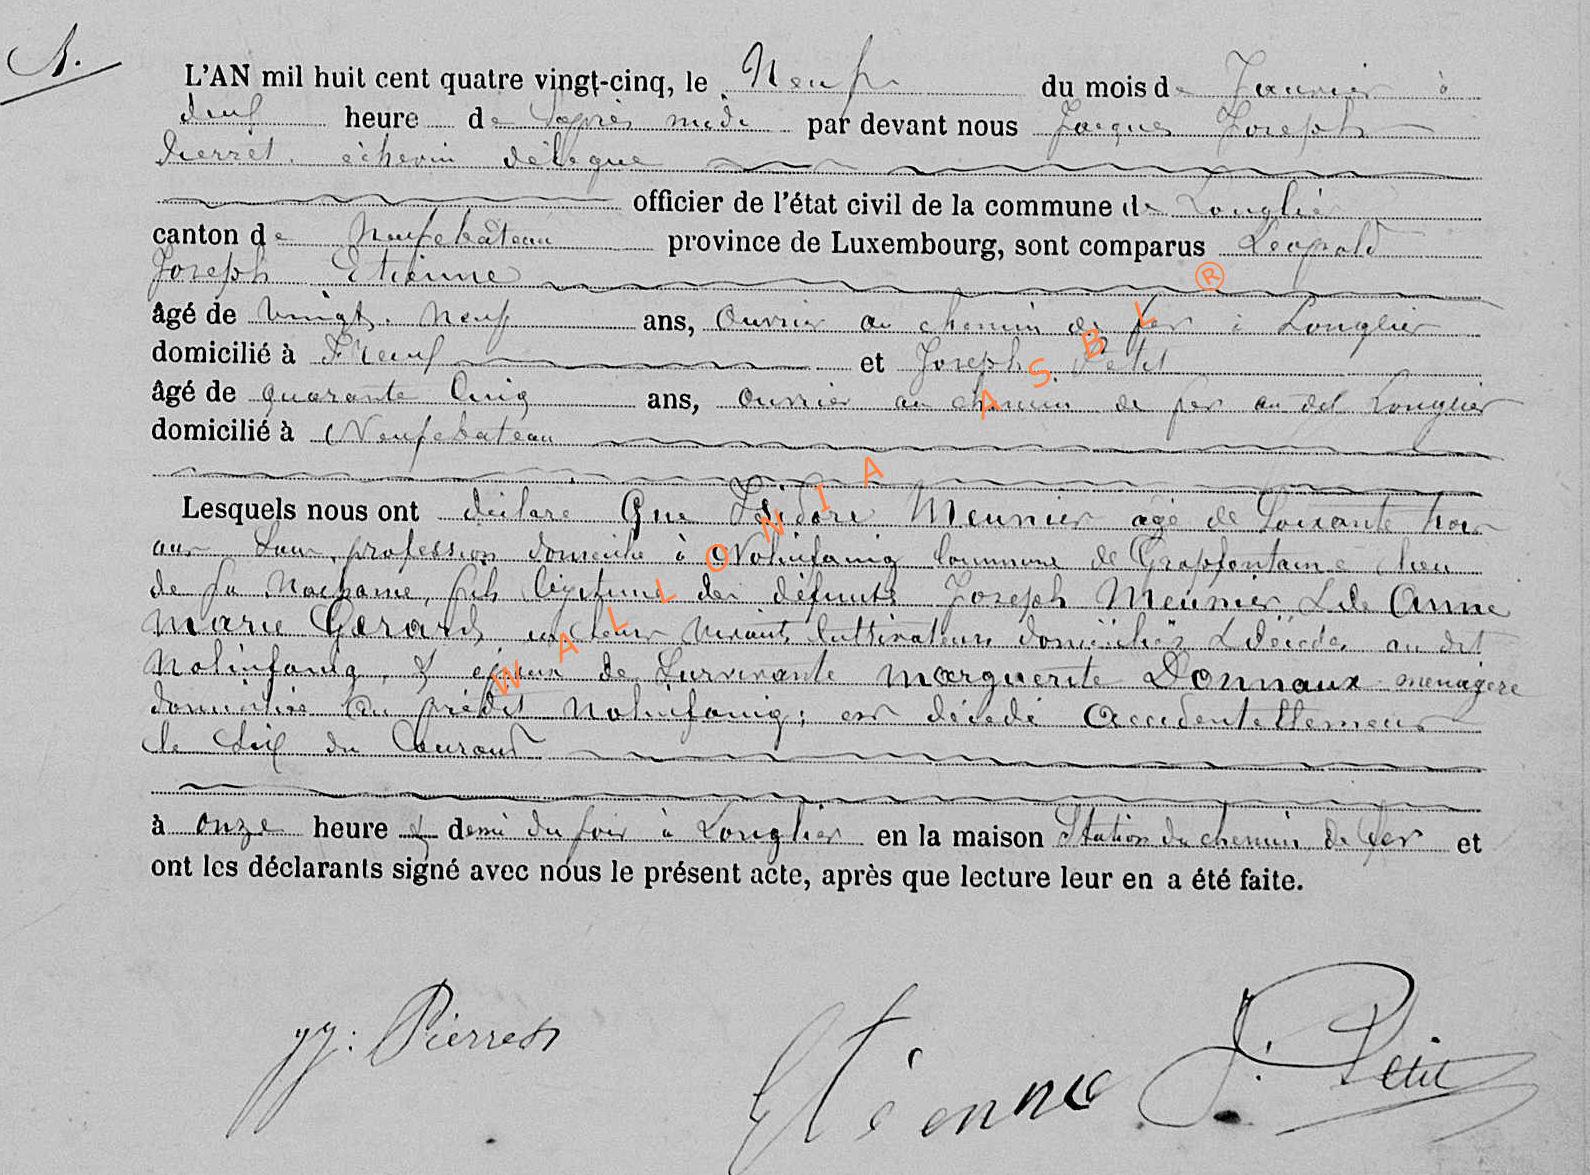 L'AN mil huit cent quatre vingt-cinq, le Neuf du mois de Janvier à
deux heure de l'après midi par devant nous Jacques Joseph
Pierret échevin délégué
officier de l'état civil de la commune de Longlier
canton de Neufchâteau province de Luxembourg, sont comparus Léopold
Joseph Etienne
âgé de vingt neuf ans, ouvrier au chemin de fer à Longlier
domicilié à et Joseph Petit
âgé de quarante cinq ans, ouvrier au chemin de fer au dit Longlier
domicilié à Neufchateau
Lesquels nous ont déclaré Que Isidore Meunier agé de soixante trois
ans sans profession domicilié à Nolinfaing commune de Grapfontaine lieu
de sa naissance, fils légitime des défunts Joseph Meunier & de Anne
Marie Gerard, en leur vivant cultivateurs domiciliés & décédés au dit
Nolinfaing, & époux de survivante Marguerite Donnaux menagère
domiciliée au prédit Nolinfaing; est décédé accidentellement
le du courant
à onze heure & demi du soir à Longlier en la maison Station du chemin de fer et
ont les déclarants signé avec nous le présent acte, après que lecture leur en a été faite.
JJ. Pierret
Etienne J. Petit
WALLONIA ASBL ®